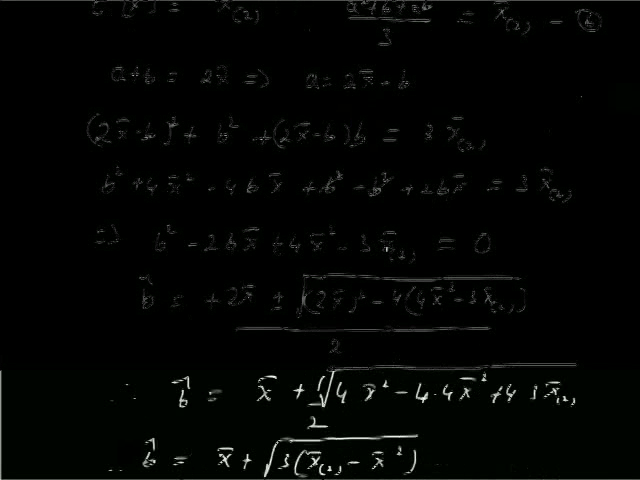 = x̄₍₂₎   (a²+b²+ab)/3 = x̄₍₂₎ - ②
a+b = 2x̄ => a = 2x̄ - b
(2x̄-b)² + b² + (2x̄-b)b = 3 x̄₍₂₎
b² + 4x̄² - 4bx̄ + b² - b² + 2bx̄ = 3 x̄₍₂₎
=> b² - 2bx̄ + 4x̄² - 3x̄₍₂₎ = 0
b̂ = (+2x̄ ± √((2x̄)² - 4(4x̄² - 3x̄₍₂₎)))/2
∴ b̂ = x̄ + 1/2 √(4x̄² - 4·4x̄² + 4 3x̄₍₂₎)
∴ b̂ = x̄ + √(3(x̄₍₂₎ - x̄²))